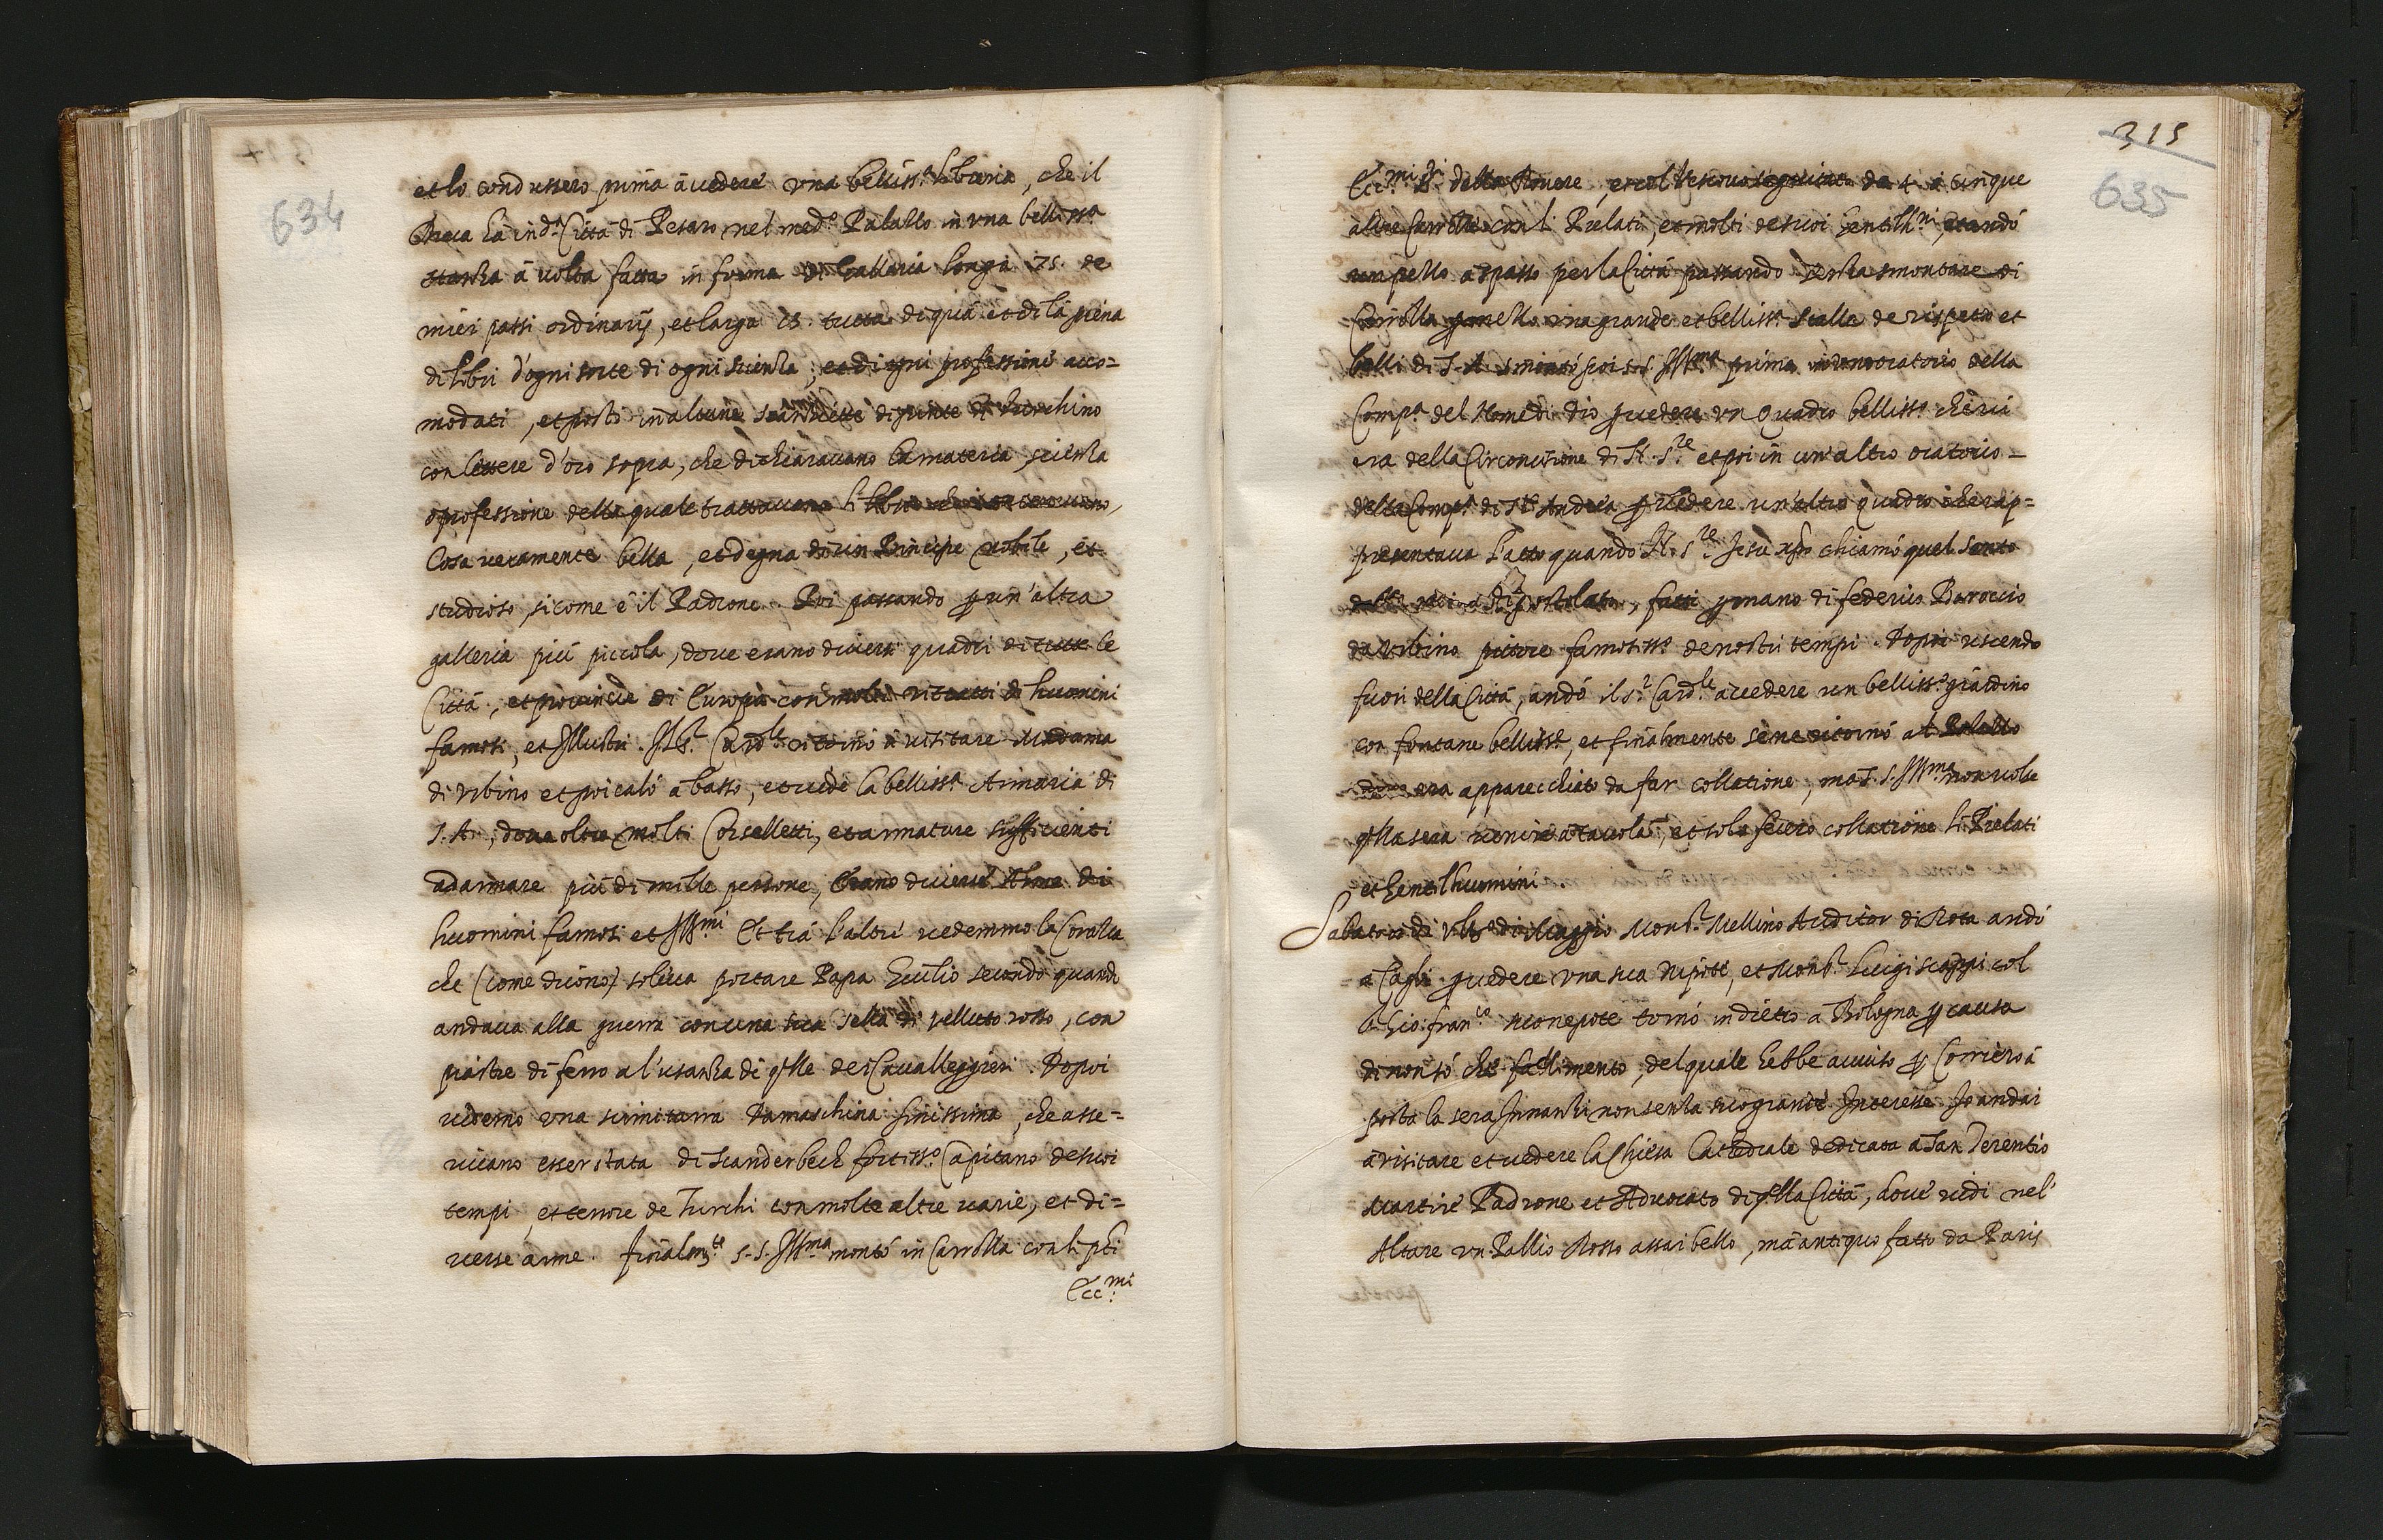 634
et lo condussero prima à vedere una belliss.a libraria, che il
Duca hà in d.a Città di Pesaro nel med.o Palazzo in una belliss.a
stanza à volta fatta in forma di Gallaria longa 75. de
miei passi ordinarij, et larga 15. tutta di quà et di là piena
di libri d'ogni sorte di ogni scienza, et di ogni professione acco=
modati, et posti in alcune scanzie dipinte di turchino
con lettere d'oro sopra, che dichiaravano la materia, scienza
o professione della quale trattavano li libri che
Cosa veramente bella, et degna di un Principe nobile, et
studioso, sicome è il Padrone. Poi passando ꝑ un'altra
galleria più piccola, dove erano diversi quadri di tutte le
Città, et provincie di Europa con molti ritratti di huomini
famosi, et Illustri. Il S.r Card.le ritornò à visitare Madama
di Urbino et poi calò à basso, et vide la belliss.a Armaria di
S. A., dove oltre molti Corselletti, et armature sufficienti
ad armare più di mille persone, Erano diverse Arme di
huomini famosi et Ill.mi Et trà l'altri vedemmo la Corazza
che (come dicono) soleva portare Papa Giulio secondo quando
andava alla guerra con una sua sella di velluto rosso, con
piastre di ferro a l'usanza di q.lle dei Cavalleggieri. Dopoi
videmo una scimitarra Damaschina finissima, che asse=
rivano esser stata di Scanderbech fortiss.o Capitano de suoi
tempi, et terrore de Turchi con molte altre varie, et di=
verse arme. Finalm.te S. S. Ill.ma montò in Carrozza con li p.ti
Ecc.mi
315
635
Ecc.mi S.ri della Rovere, et col Vescovo seguitato da 4 à cinque
altre Carrozze con li Prelati, et molti de suoi Gentilh.ni, et andò
un pezzo à spasso per la Città passando senza smontare di
Carrozza ꝑ mezzo una grande et belliss.a stalla de rispetto et
belli di S. A. smontò poi S. S. Ill.ma prima in un oratorio della
Comp.a del Nome di dio ꝑ vedere un quadro belliss.o che vi
era della Circoncisione di N. S.re et poi in un'altro oratorio
della Comp.a di S.to Andrea ꝑ vedere un'altro quadro che rap=
presentava l'atto quando N. S.re Jesu xp̄o chiamò quel santo
Apostolato, fatti ꝑ mano di federico Baroccio
da Urbino pittore famosiss.o de nostri tempi. Dopoi uscendo
fuori della Città, andò il S.r Card.le à vedere un belliss.o giardino
con fontane belliss.e, et finalmente se ne ritornò al Palazzo
dove era apparecchiato da far collatione, ma S. S. Ill.ma non volse
q.lla sera venire à tavola, et solo fecero collatione li Prelati
et Gentilhuomini.
Sabato di ult.o di Maggio Mons.r Mellino Auditor di Rota andò
a Cagli ꝑ vedere una sua nipote, et Mons.r Luigi scappi col
S. Gio: fran.co suo nepote tornò indietro a Bologna ꝑ causa
di non sò che fallimento, del quale hebbe aviso ꝑ Corriero à
posta la sera Innanzi non senza suo grande Interesse Io andai
à visitare et vedere la Chiesa Catedrale dedicata à San Terentio
Martire Padrone et Advocato di q.lla Città, dove vidi nel'
Altare un Pallio Rosso assai bello, mà antiquo fatto da Paris